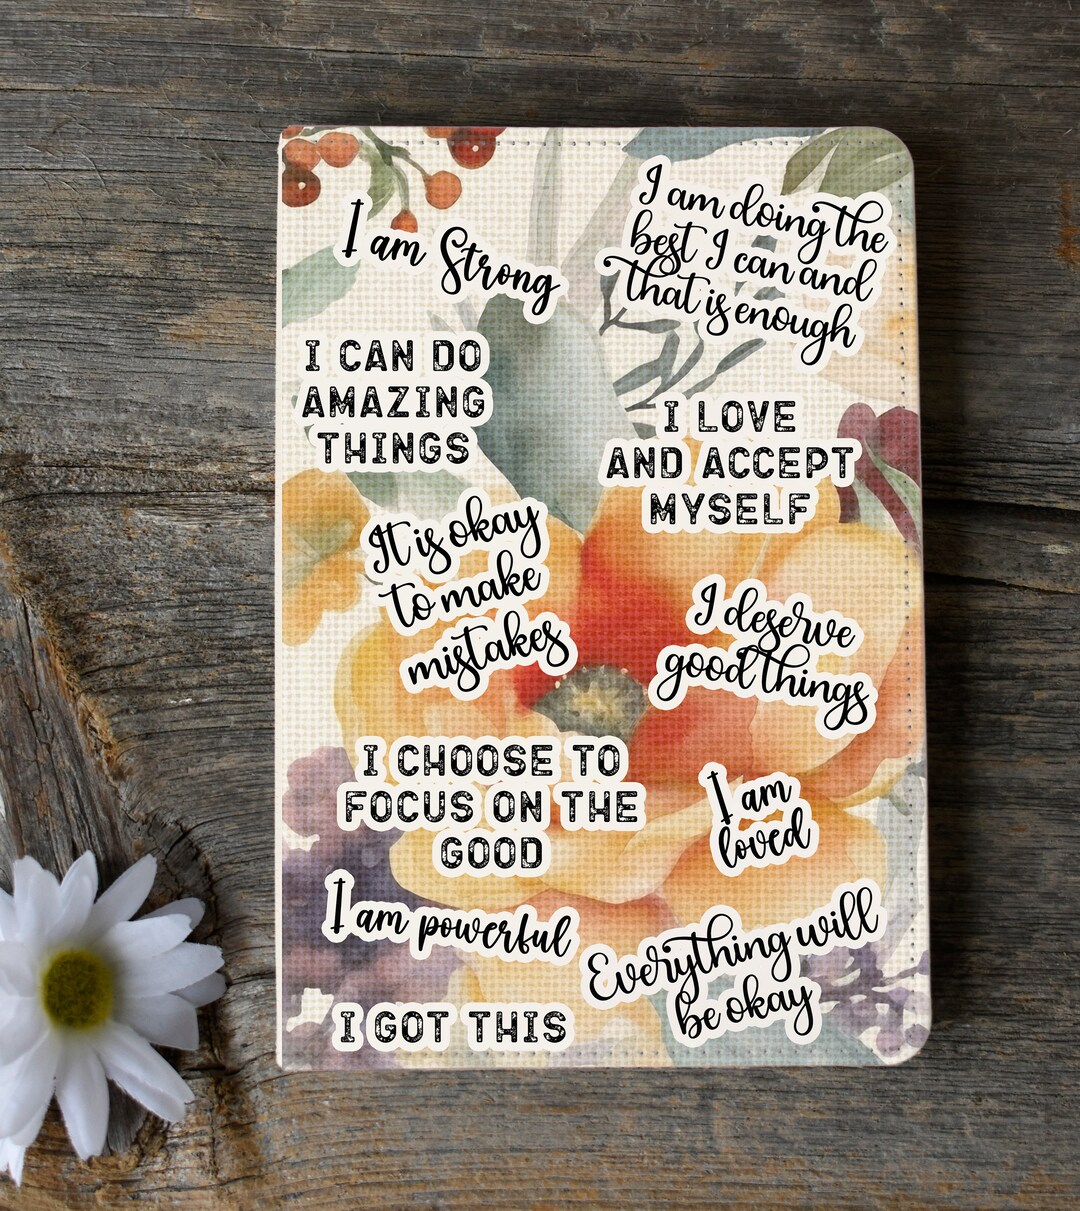 I am Strong
I am doing the
best I can and
that is enough
I CAN DO
AMAZING
THINGS
I LOVE
AND ACCEPT
MYSELF
It is okay
to make
mistakes
I deserve
good things
I CHOOSE TO
FOCUS ON THE
GOOD
I am
loved
I am powerful
Everything will
be okay
I GOT THIS